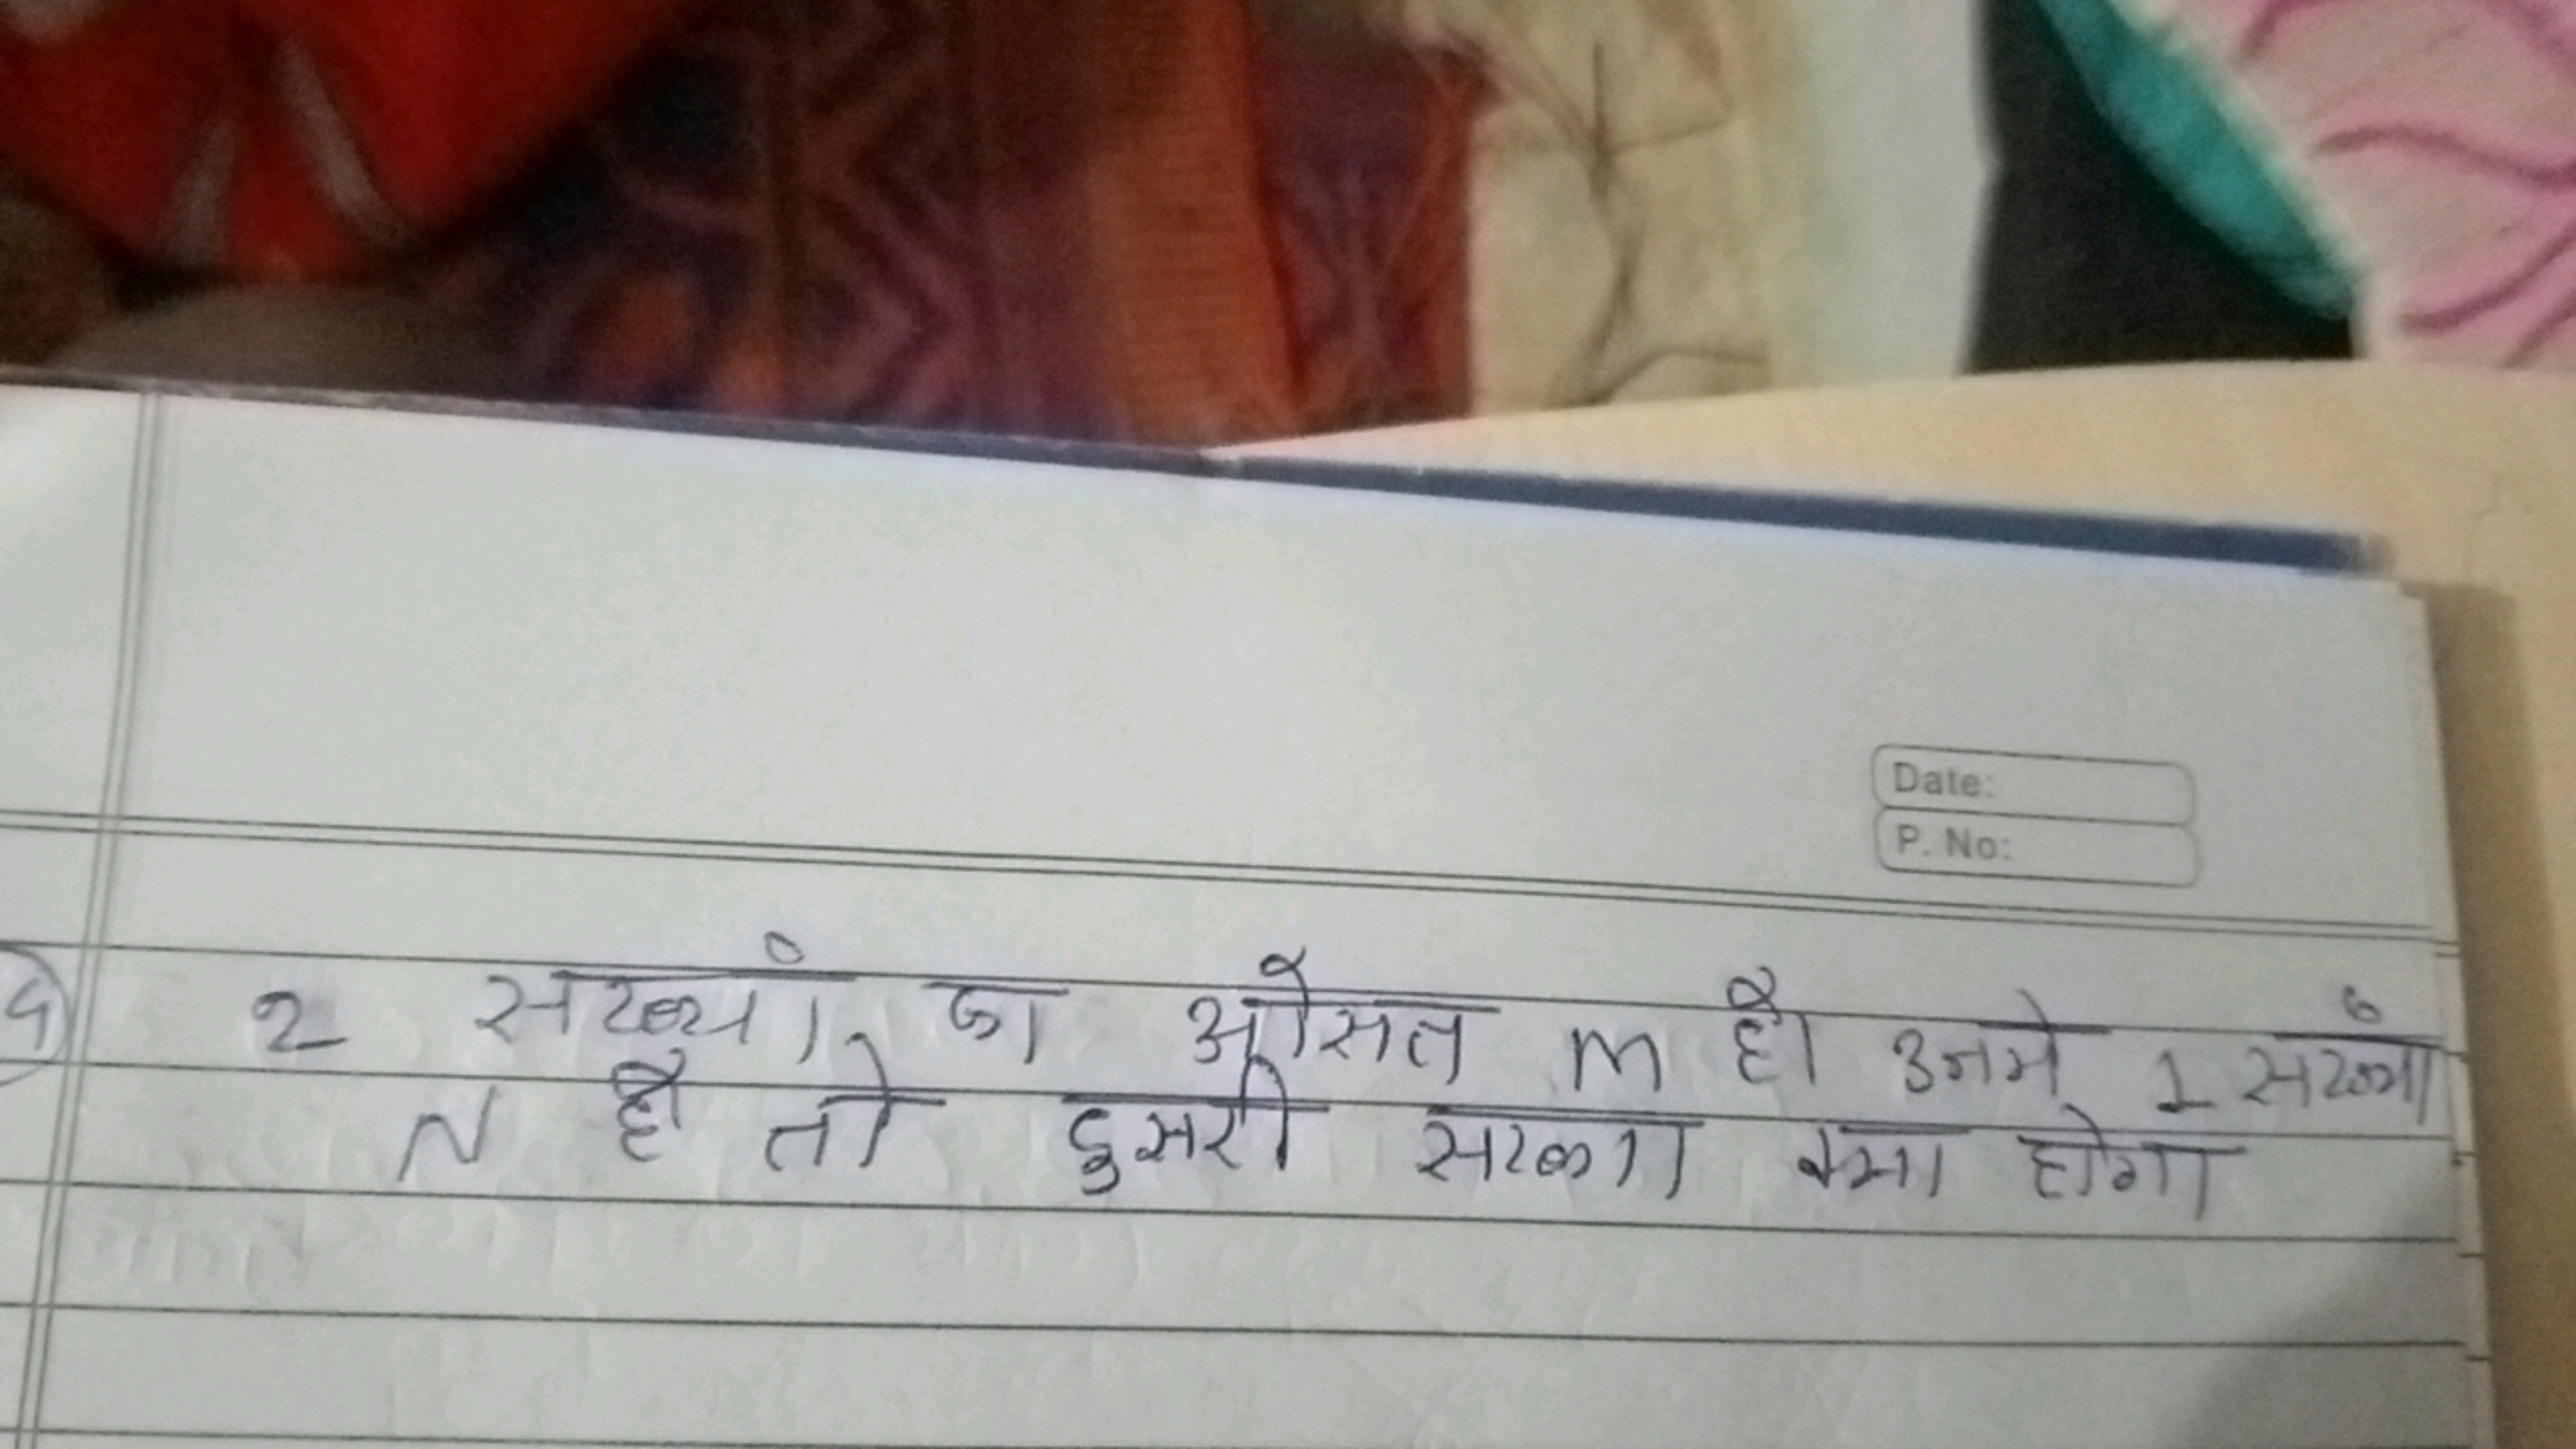 Date:
P. No:
2 संख्या का औसत m है उनमे 1 संख्या
N है तो दुसरी सख्या क्या होगा